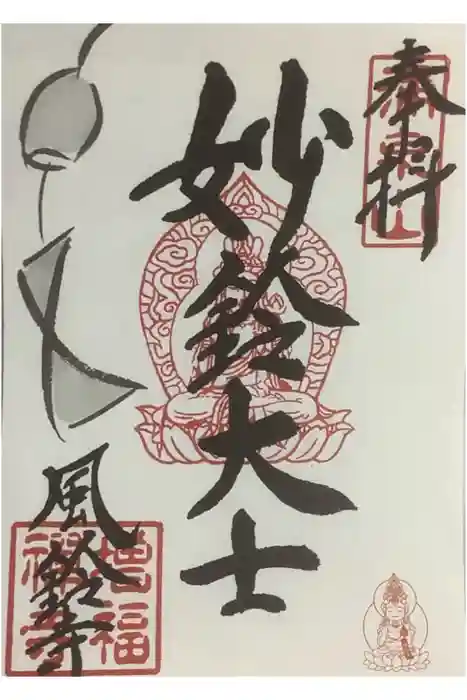 奉拝
妙鈴大士
風鈴寺
増福